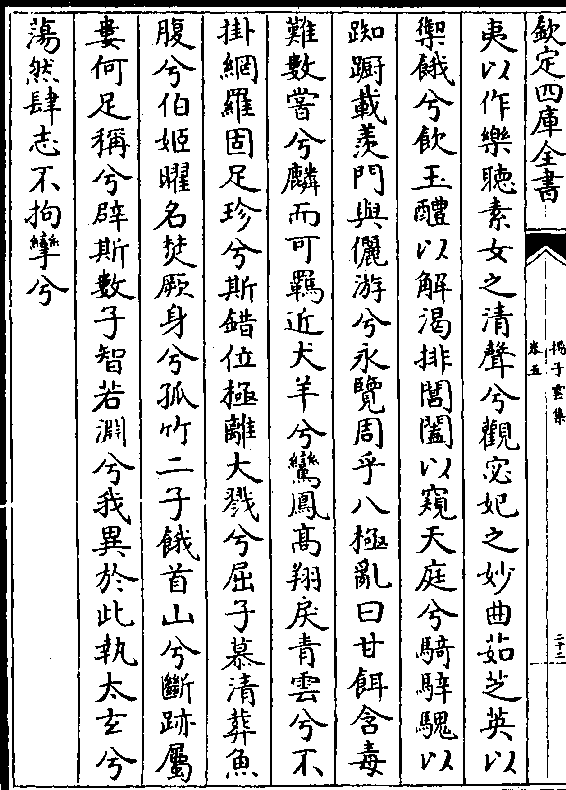 欽定四庫全書
揚子雲集
卷五
二十二
夷以作樂聽素女之清聲兮觀宓妃之妙曲茹芝英以
禦餓兮飲玉醴以解渴排閶闔以窺天庭兮騎騂騩以
踟躕載羨門與儷游兮永覽周乎八極亂曰甘餌含毒
難數嘗兮麟而可羈近犬羊兮鸞鳳高翔戾青雲兮不
掛網羅固足珍兮斯錯位極離大戮兮屈子慕清葬魚
腹兮伯姬曜名焚厥身兮孤竹二子餓首山兮斷跡屬
婁何足稱兮辟斯數子智若淵兮我異於此執太玄兮
蕩然肆志不拘攣兮